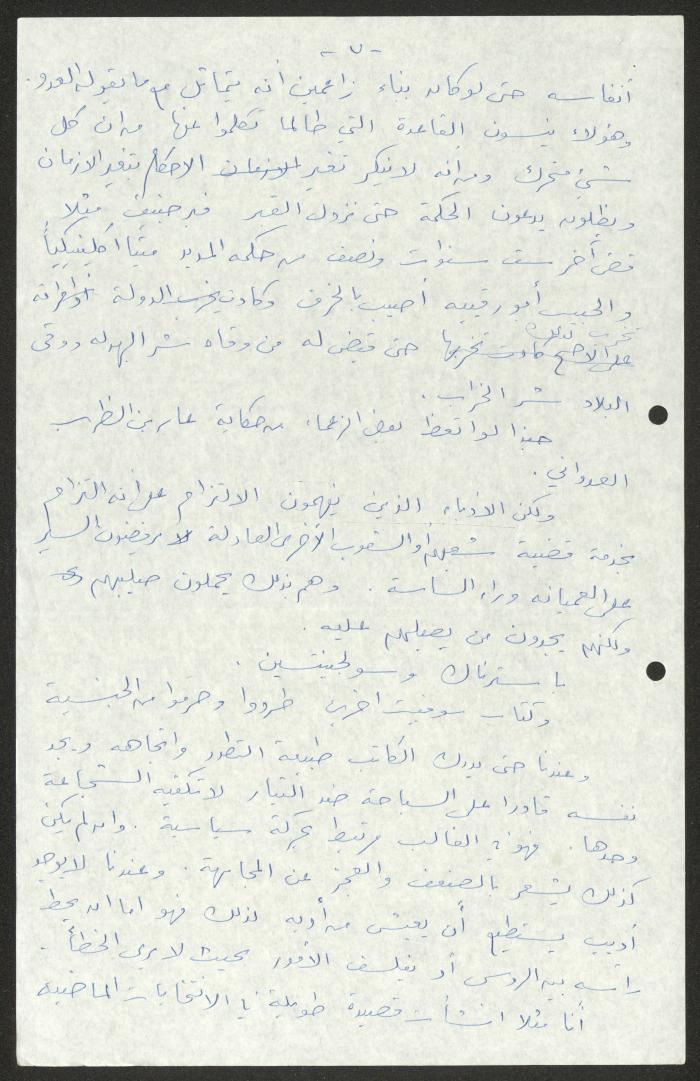 - ٧ -
أنفاسه حتى لو كان بناء زاعمين أنه يتماثل مع ما يقوله العدو.
وهؤلاء ينسون القاعدة التي طالما تكلموا عنها من ان كل
شيء متحرك ومن انه لا ينكر تغير الازمان الاحكام بتغير الازمان
ويظلون يدعون الحكمة حتى نزول القبر فبرجنيف مثلا
قضى آخر ست سنوات ونصف من حكمه المديد ميتا اكلينيكياً
والحبيب أبو رقيبه أصيب بالخرف وكادت يخرب الدولة أو خرافته
تخرب الدولة
على الاصح كادت تخربها حتى قيض له من وقاه شر البهدله ووقى
البلاد شر الخراب.
حبذا لو اتعظ بعض الزعماء من حكاية عامر بن الظرب
العدواني.
ولكن الأدباء الذين يفهمون الالتزام على أنه التزام
بخدمة قضية شعبهم أو الشعوب الأخرى العادلة لا يرفضون السير
على العميانه وراء الساسة. وهم بذلك يحملون صليبهم
ولكنهم يجدون من يصلبهم عليه.
باسترناك وسولجينتسين.
وكتاب سوفييت آخرين طردوا وحرموا من الجنسية
وعندنا حتى يدرك الكاتب طبيعة التطور واتجاهه ويجد
نفسه قادرا على السباحة ضد التيار لا تكفيه الشجاعة
وحدها. فهو في الغالب مرتبط بحركة سياسية. وان لم يكن
كذلك يشعر بالضعف والعجز عن المجابهة. وعندنا لا يوجد
أديب يستطيع أن يعيش من أدبه لذلك فهو اما ان يحط
راسه بين الروس أو يفلسف الأمور بحيث لا يرى الخطأ.
أنا مثلا انشأت قصيدة طويلة في الانتخابات الماضية